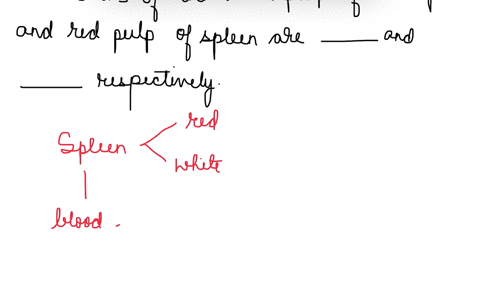 of
and red pulp of spleen are ____ and
____ respectively.
Spleen
red
white
blood.